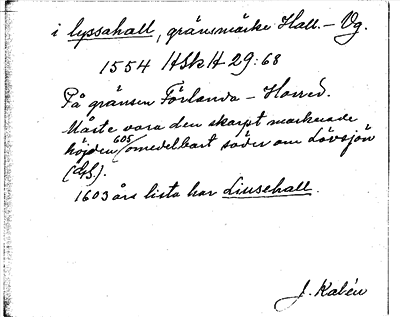 i lyssahall, gränsmärke Hall. – Vg.
1554 HSkH 29:68
På gränsen Förlanda – Horred.
Måste vara den skarpt markerade
höjden 605/omedelbart söder om Lövsjön
(GS).
1603 års lista har Liusehall.
J. Kalén